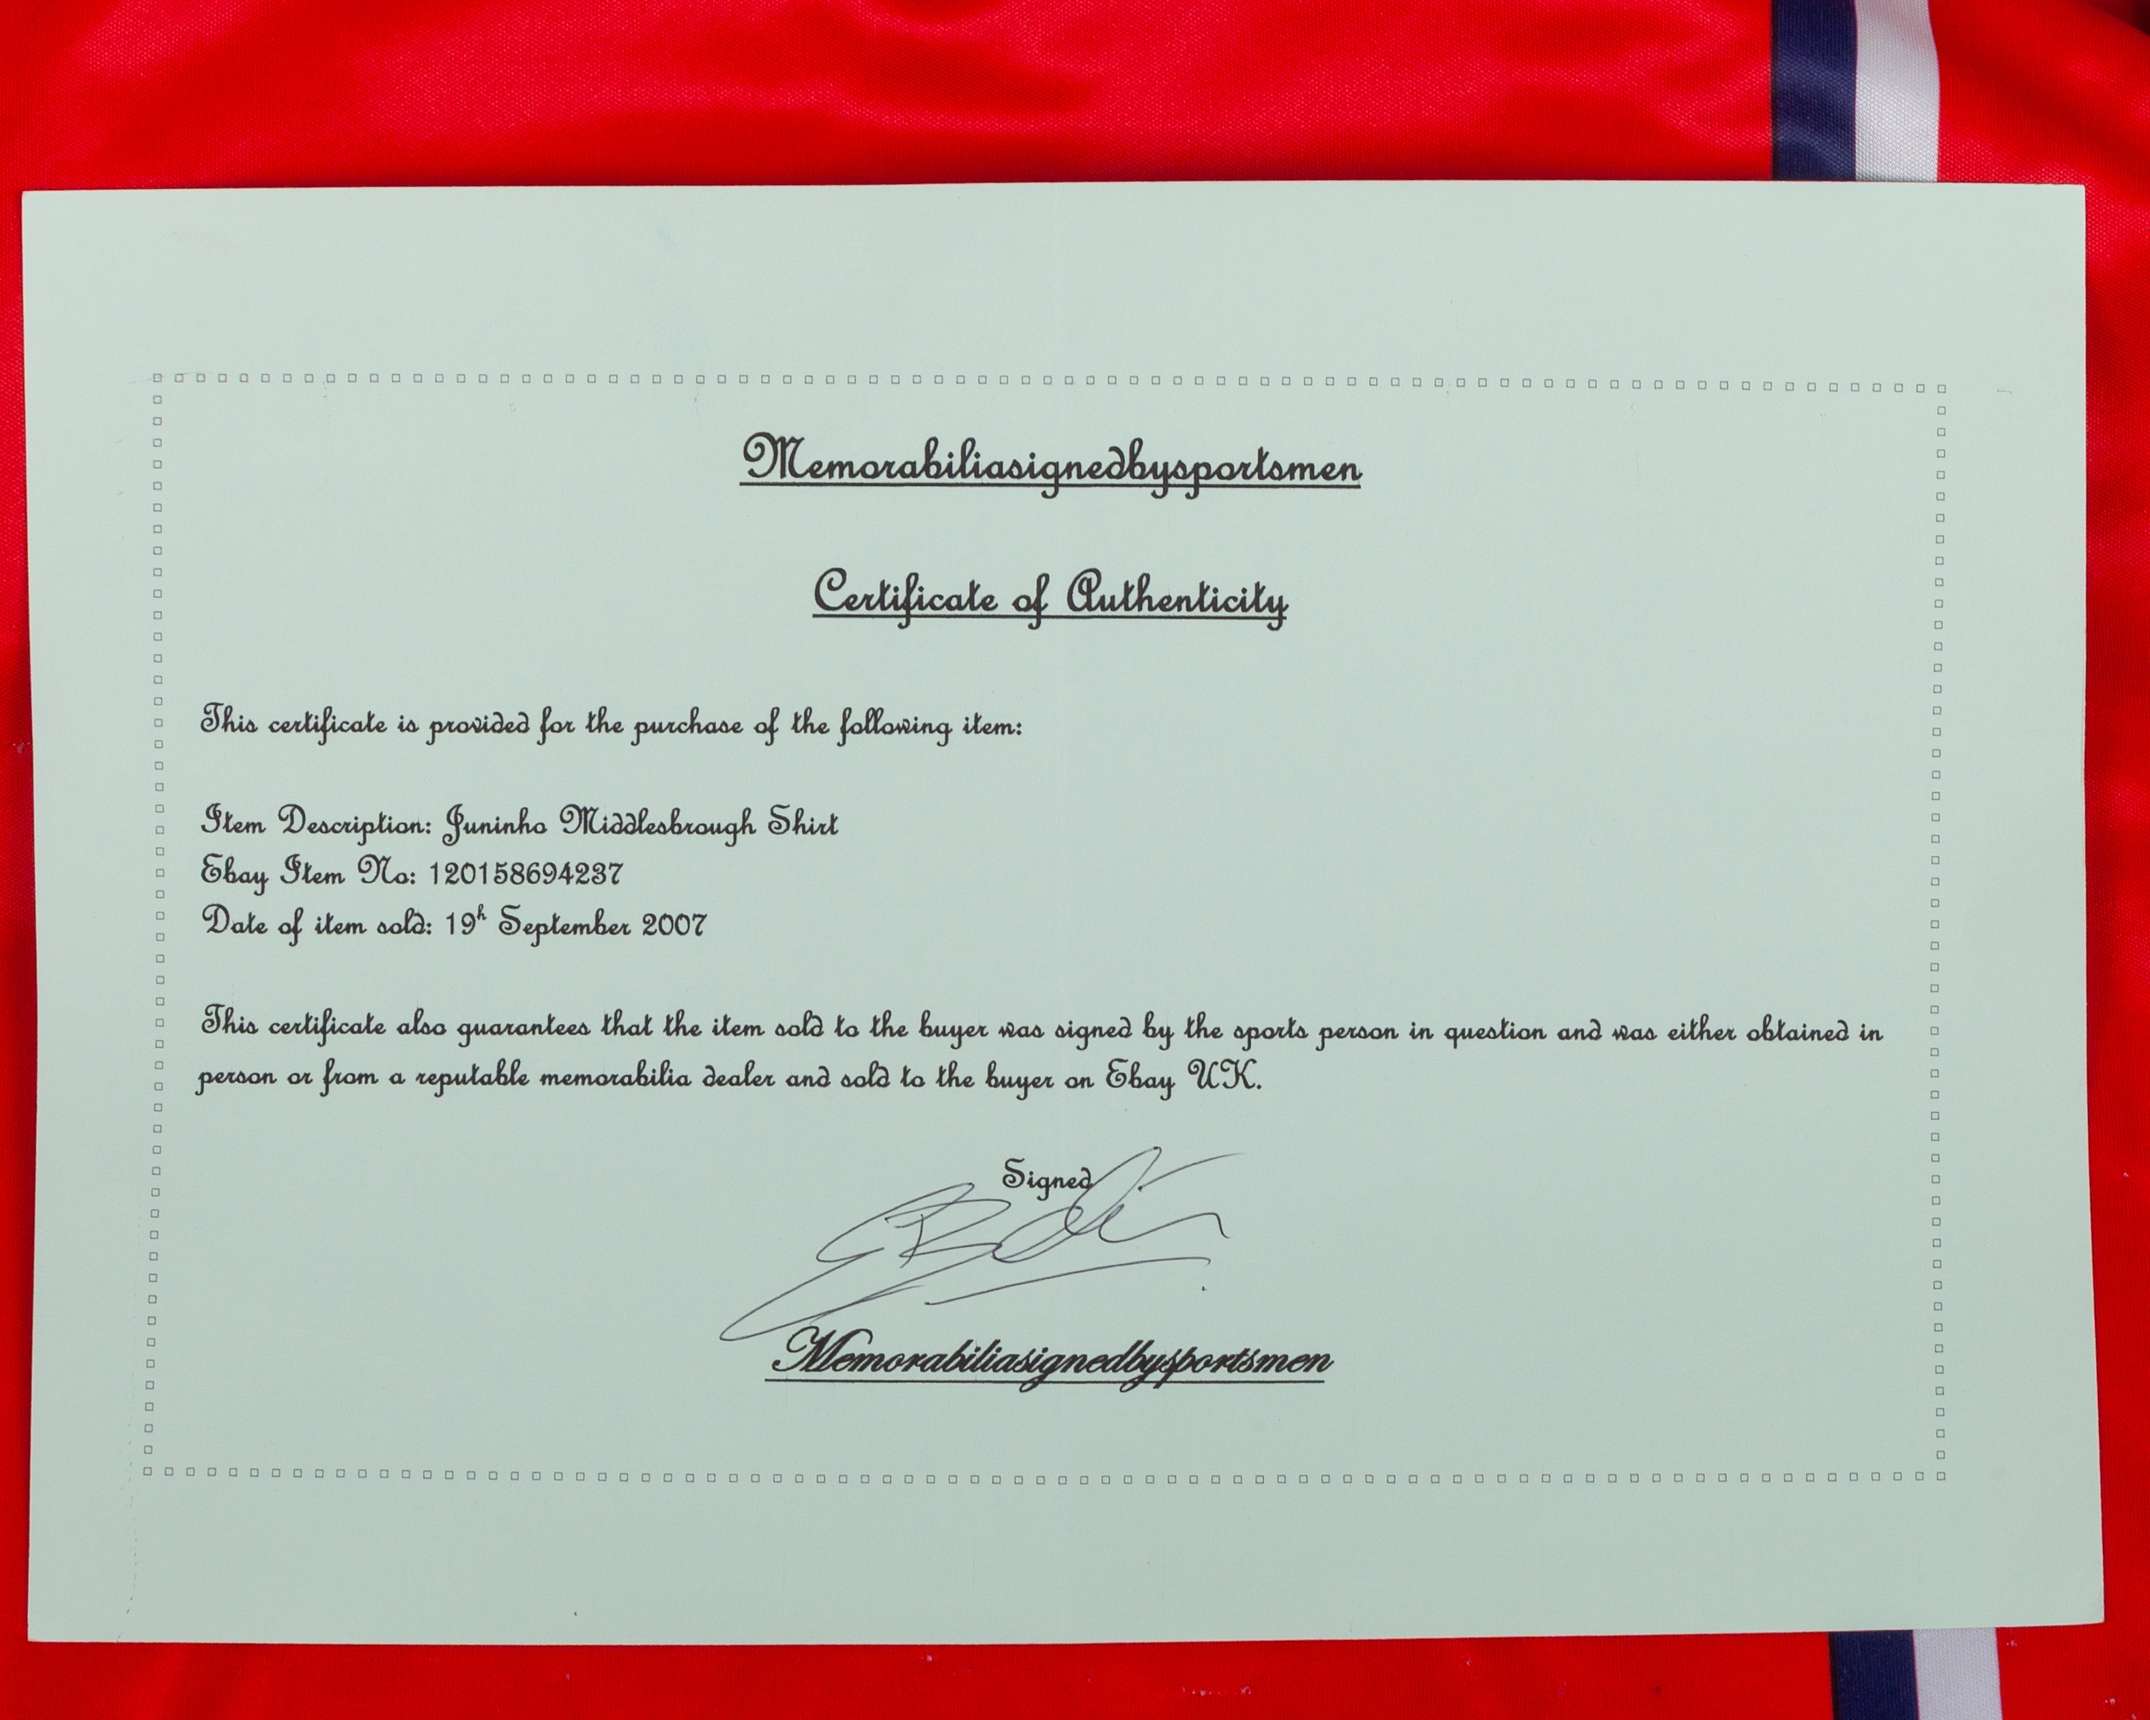 Memorabiliasignedbysportsmen
Certificate of Authenticity
This certificate is provided for the purchase of the following item:
Item Description: Juninho Middlesbrough Shirt
Ebay Item No: 120158694237
Date of item sold: 19h September 2007
This certificate also guarantees that the item sold to the buyer was signed by the sports person in question and was either obtained in
person or from a reputable memorabilia dealer and sold to the buyer on Ebay UK.
Signed
Memorabiliasignedbysportsmen